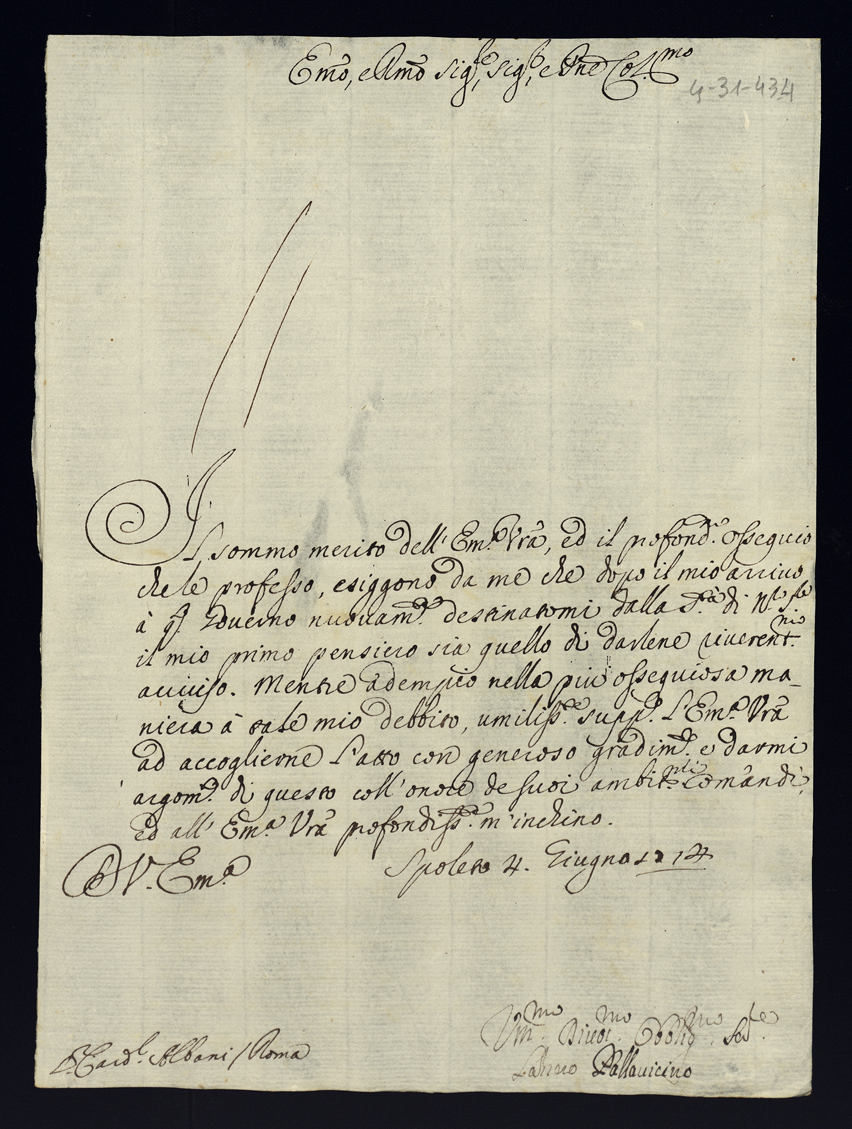 Emo, e Rmo Sigre, Sigre, e Pne Colmo
4-31-434
Il sommo merito dell' Ema Vra, ed il profondo ossequio
che le professo, esiggono da me che dopo il mio arrivo
à qo Governo nuovamte destinatomi dalla Stà di N. Sre
il mio primo pensiero sia quello di darlene riverentmo
avviso. Mentre adempio nella più ossequiosa ma-
niera à tale mio debbito, umilisse suppco l'Ema Vra
ad accoglierne l'atto con generoso gradimto e darmi
argomto di questo coll' onore de suoi ambitmi Comandi,
ed all' Ema Vra profondisse m'inchino.
D V. Ema Spoleto 4. Giugno 1714
Ummo Divmo Obbligmo Sere
Pallavicino
Sr Cardl Albani / Roma